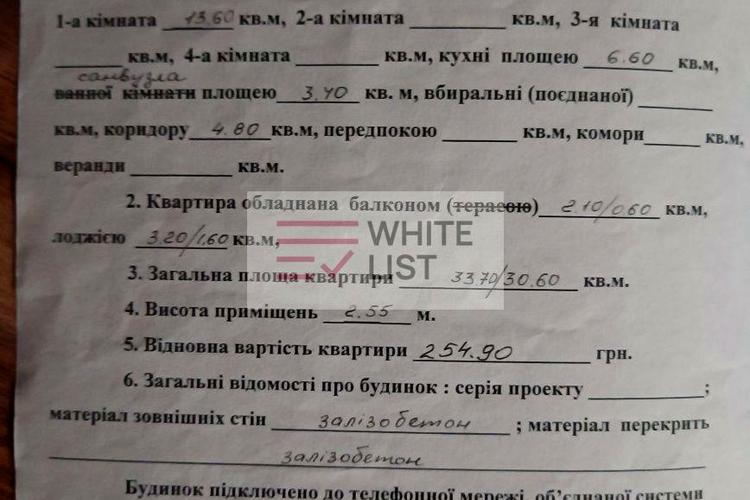 1-а кімната 13.60 кв.м, 2-а кімната ________ кв.м, 3-я кімната
______ кв.м, 4-а кімната ________ кв.м, кухні площею 6.60 кв.м,
санвузла
ванної кімнати площею 3.40 кв. м, вбиральні (поєднаної) ________
кв.м, коридору 4.80 кв.м, передпокою ________ кв.м, комори ______ кв.м,
веранди ________ кв.м.
2. Квартира обладнана балконом (терасою) 2.10/0.60 кв.м,
лоджією 3.20/1.60 кв.м,
WHITE
LIST
3. Загальна площа квартири 33.70/30.60 кв.м.
4. Висота приміщень 2.55 м.
5. Відновна вартість квартири 254.90 грн.
6. Загальні відомості про будинок : серія проекту ________;
матеріал зовнішніх стін залізобетон ; матеріал перекрить
залізобетон
Будинок підключено до телефонної мережі, об'єднаної системи